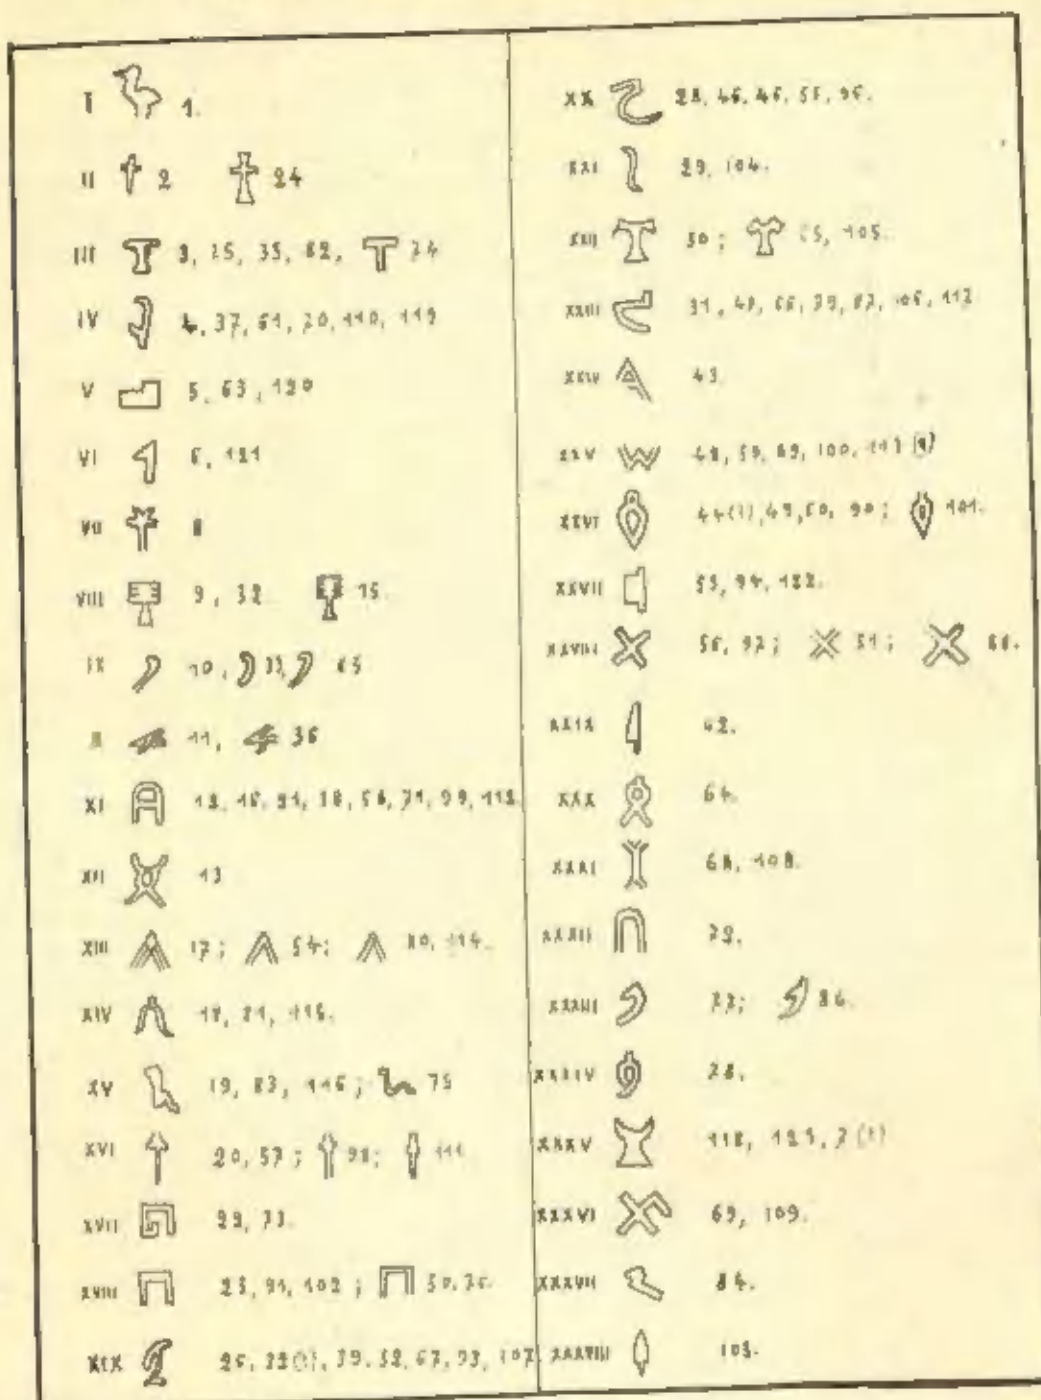 I 1.
II 2 24
III 3, 25, 35, 82, 74
IV 4, 37, 61, 70, 110, 119
V 5, 63, 120
VI 6, 121
VII 8
VIII 9, 32 15.
IX 10, 33, 65
X 11, 36
XI 12, 16, 31, 38, 71, 99, 112
XII 13
XIII 17; 54; 80, 114.
XIV 18, 81, 115.
XV 19, 83, 116; 75
XVI 20, 57; 98; 111
XVII 22, 73.
XVIII 23, 91, 102; 50, 76.
XIX 26, 39, 52, 67, 93, 107
XX 28, 45, 46, 96.
XXI 29, 104.
XXII 30; 105.
XXIII 31, 66, 79, 87, 106, 117
XXIV 43.
XXV 48, 59, 89, 100,
XXVI 44(?), 49, 60, 90; 101.
XXVII 53, 94, 122.
XXVIII 56, 97; 51; 86.
XXIX 42.
XXX 64.
XXXI 68, 108.
XXXII
XXXIII 77; 86.
XXXIV
XXXV 118, 7(?)
XXXVI 69, 109.
XXXVII 84.
XXXVIII 103.